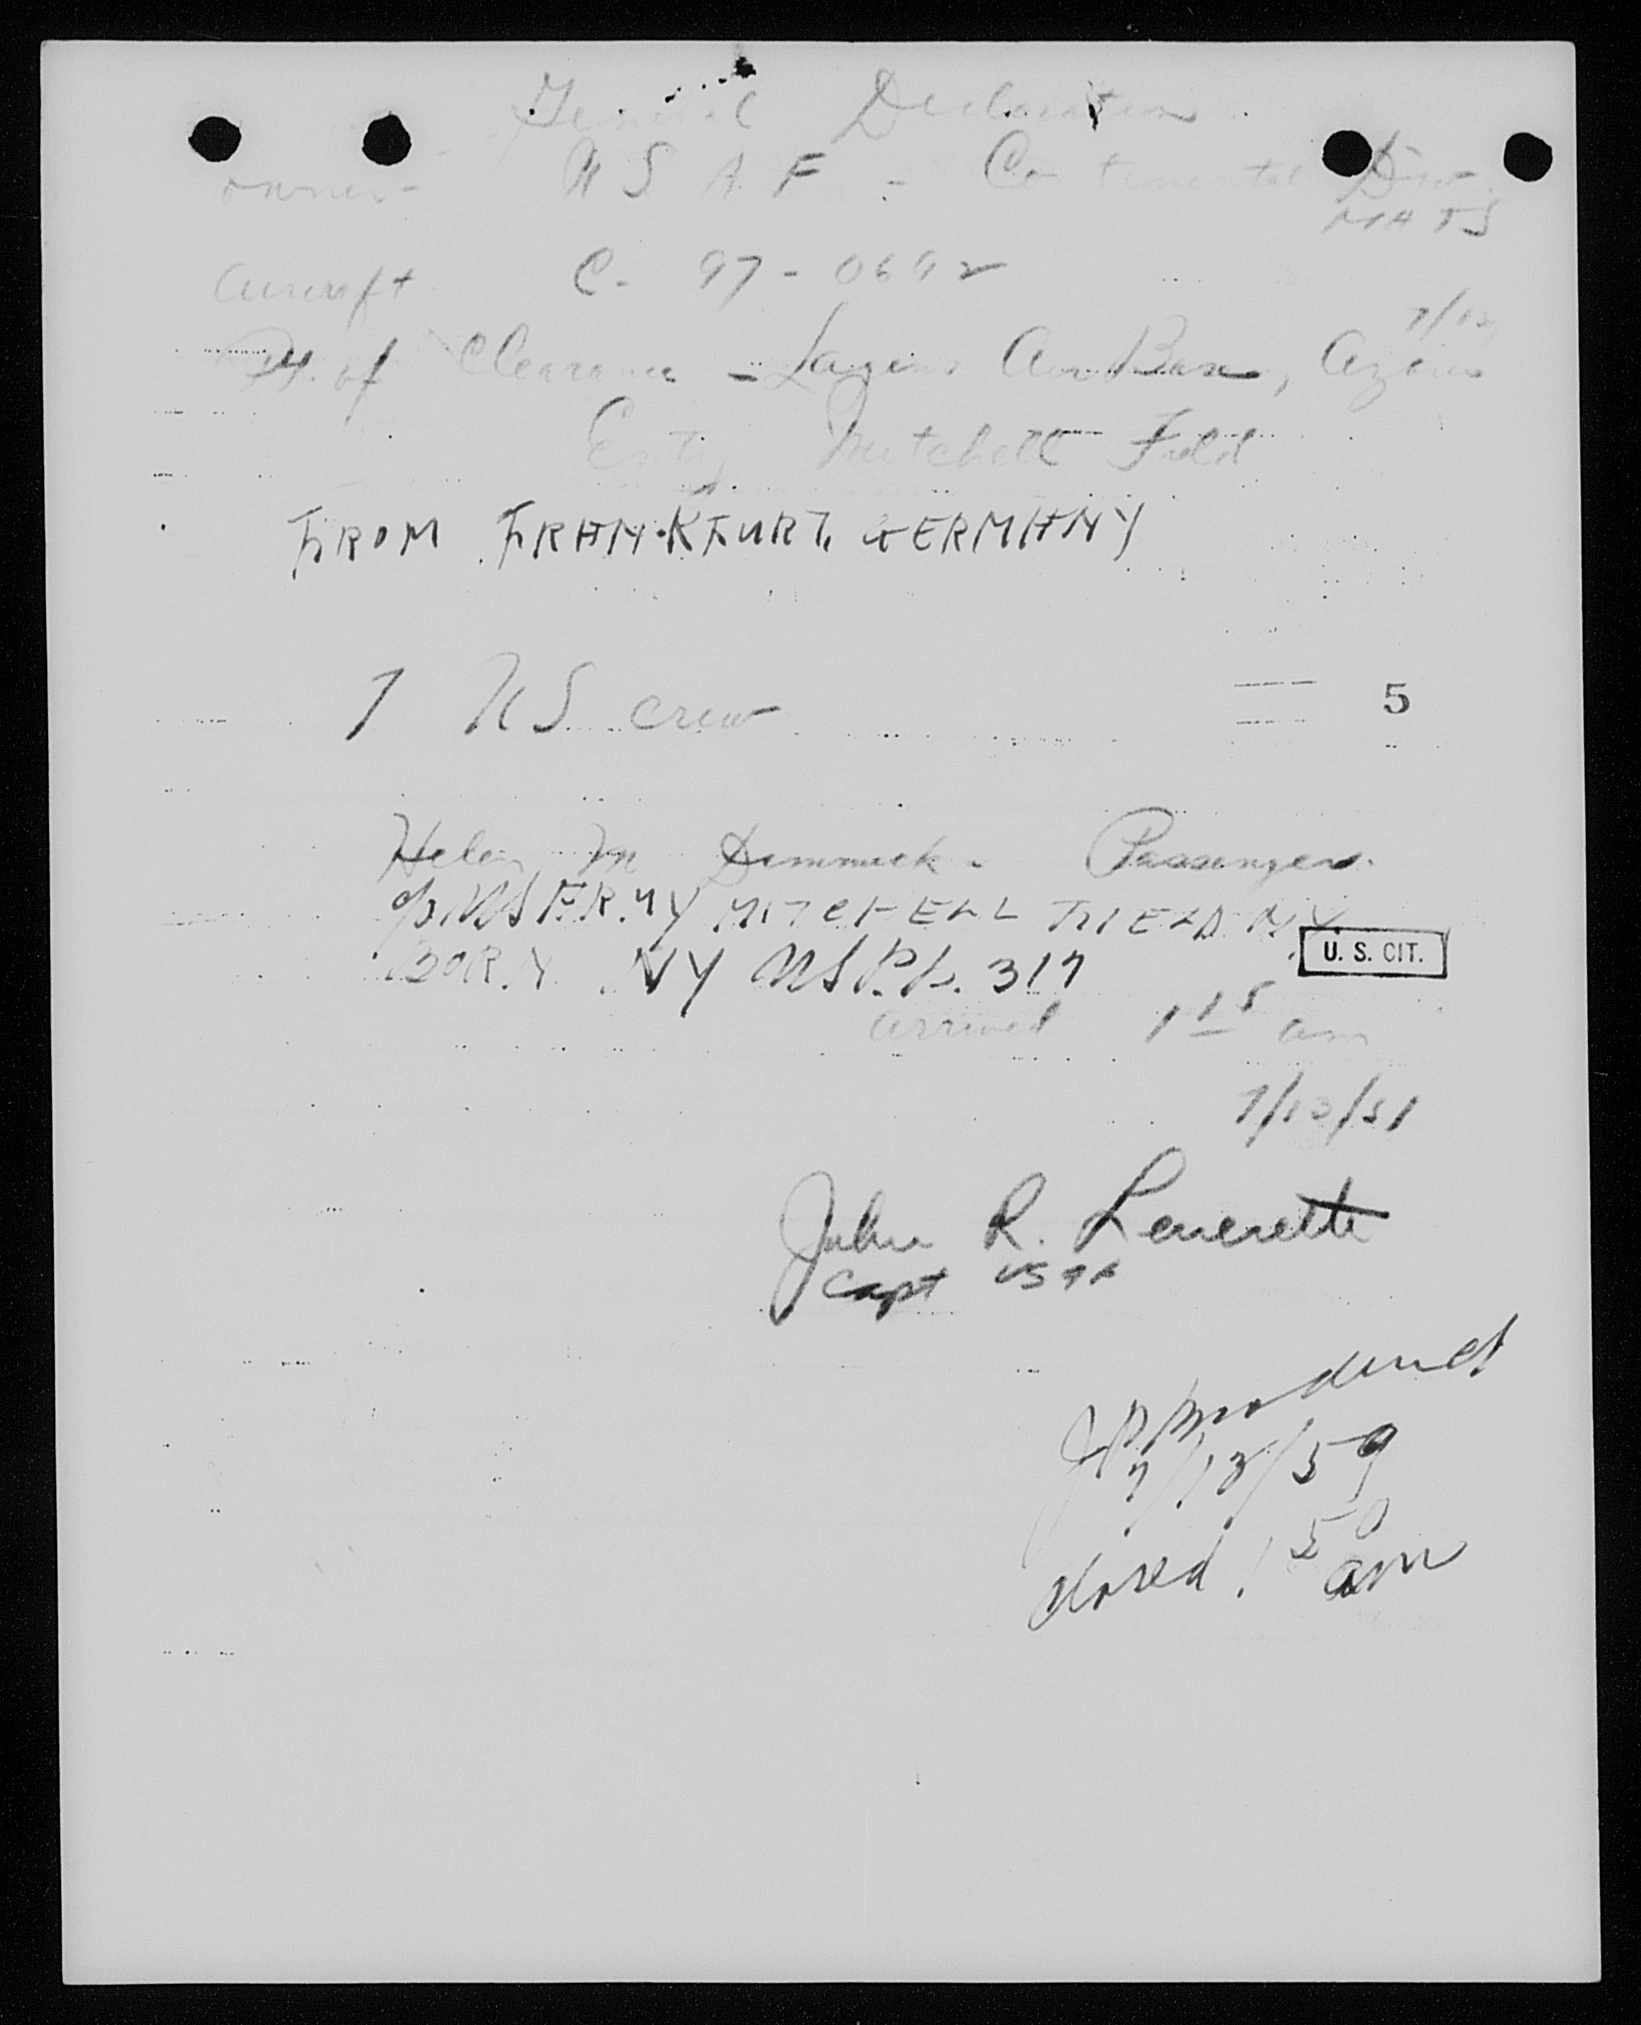 General Declaration
owner - USAF - Continental Div.
MATS
Aircraft C-97-0692
7/12
Pt. of Clearance - Lagens Air Base, Azores
Entry Mitchell Field
FROM FRANKFURT, GERMANY
7 US crew
5
Helen M Dimmick - Passenger.
MITCHELL FIELD NY
U. S. CIT.
BORN NY 317
arrived 1 15 am
7/13/51
John R. Leverette
Capt USAF
7/13/59
closed 1 50 am